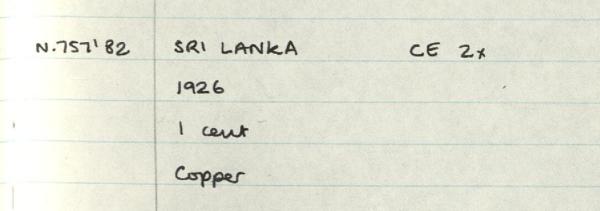 N.757'82 SRI LANKA CE 2x
1926
1 cent
Copper